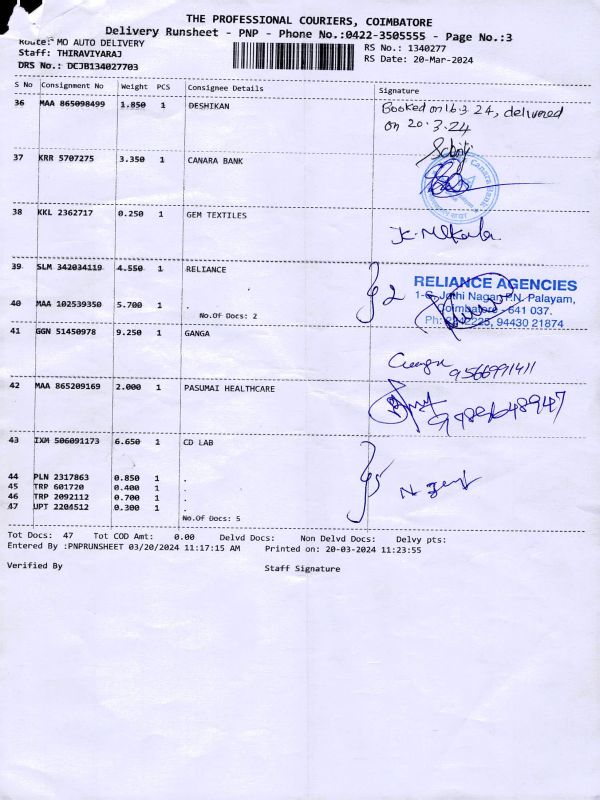 THE PROFESSIONAL COURIERS, COIMBATORE
Delivery Runsheet - PNP - Phone No.:0422-3505555 - Page No.:3
Route: MO AUTO DELIVERY
RS No.: 1340277
Staff: THIRAVIYARAJ
RS Date: 20-Mar-2024
DRS No.: DCJB134027703
S No Consignment No Weight PCS Consignee Details Signature
36 MAA 865098499 1.850 1 DESHIKAN
Booked on 16.3.24, delivered
on 20.3.24
37 KRR 5707275 3.350 1 CANARA BANK
38 KKL 2362717 0.250 1 GEM TEXTILES
39 SLM 342034119 4.550 1 RELIANCE
RELIANCE AGENCIES
Jothi Nagar P.N. Palayam,
Coimbatore - 641 037.
94430 21874
2
40 MAA 102539350 5.700 1
No.Of Docs: 2
41 GGN 51450978 9.250 1 GANGA
Ganga
9566991411
42 MAA 865209169 2.000 1 PASUMAI HEALTHCARE
43 IXM 506091173 6.650 1 CD LAB
5
44 PLN 2317863 0.850 1 .
45 TRP 601720 0.400 1 .
46 TRP 2092112 0.700 1 .
47 UPT 2204512 0.300 1 .
No.Of Docs: 5
Tot Docs: 47 Tot COD Amt: 0.00 Delvd Docs: Non Delvd Docs: Delvy pts:
Entered By :PNPRUNSHEET 03/20/2024 11:17:15 AM Printed on: 20-03-2024 11:23:55
Verified By Staff Signature